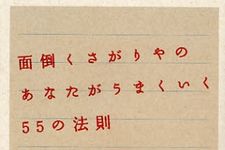 面倒くさがりやの
あなたがうまくいく
55の法則